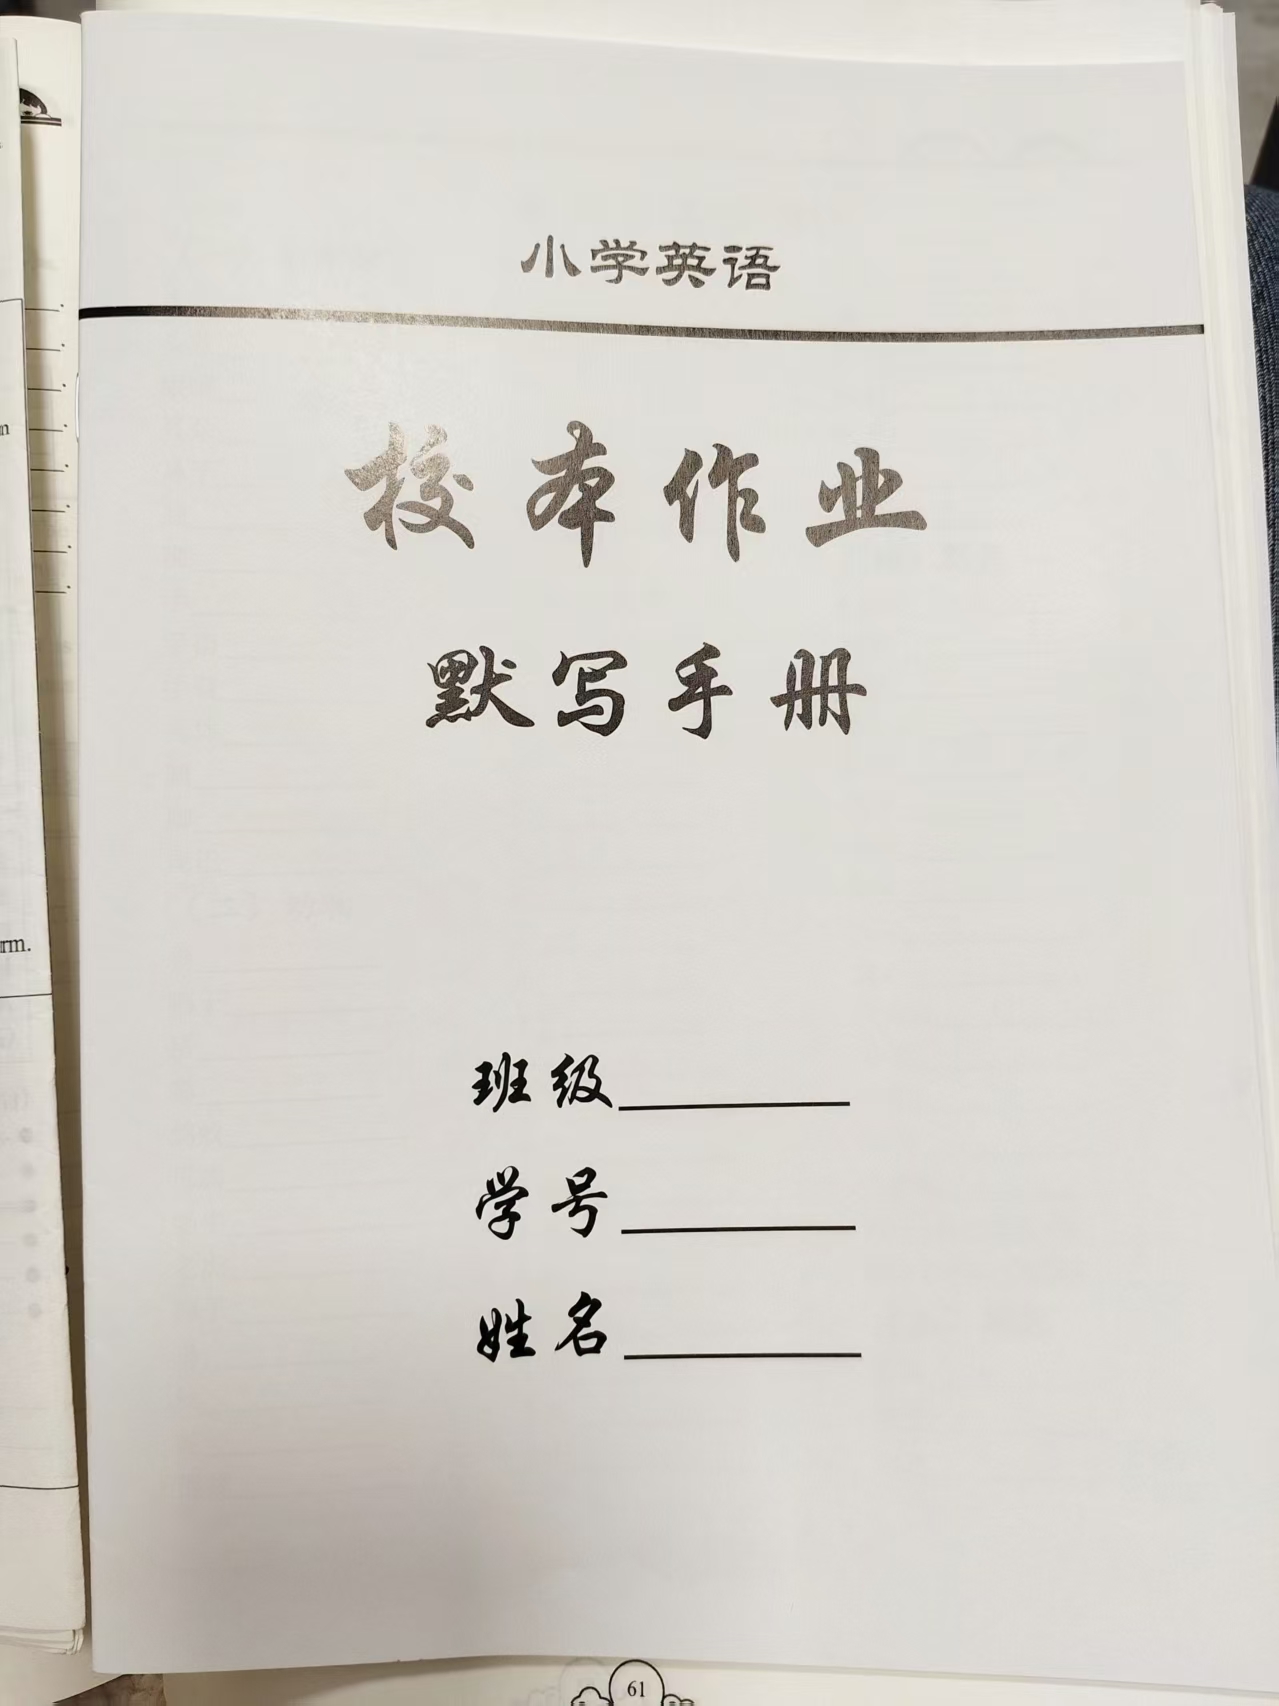 小学英语
校本作业
默写手册
班级
学号
姓名
rm.
61